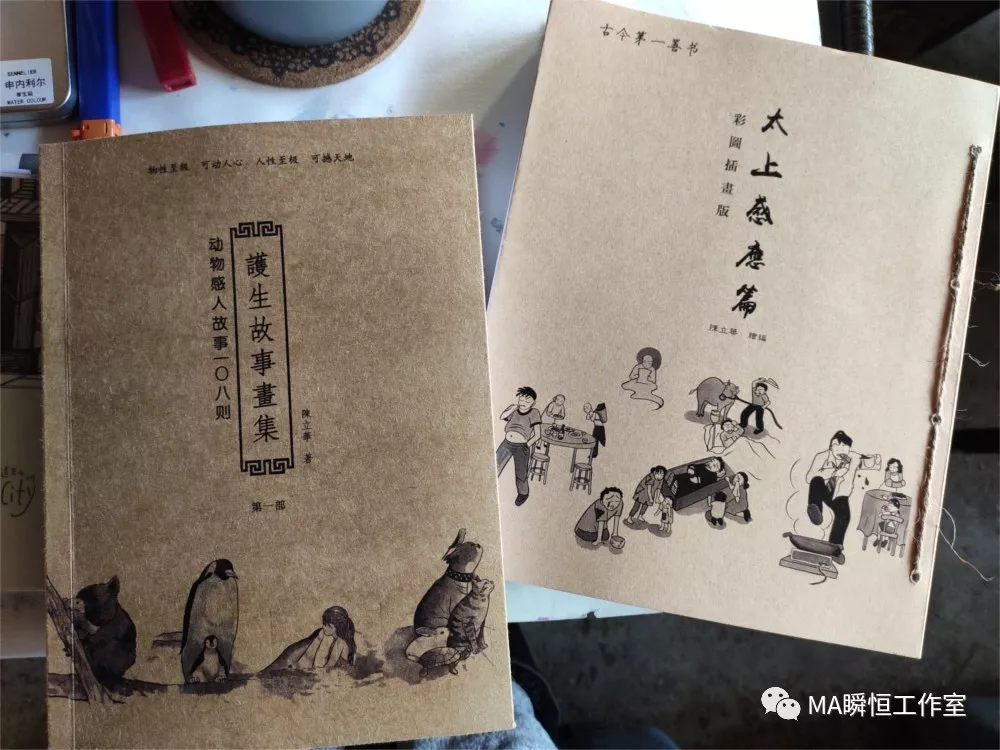 SENNELIER
申内利尔
学生级
WATER COLOUR
物性至极 可动人心 人性至极 可撼天地
動物感人故事一〇八则
護生故事畫集
陳立華 著
第一部
City
古今第一善书
太上感應篇
彩圖插畫版
陳立華 繪編
MA瞬恒工作室